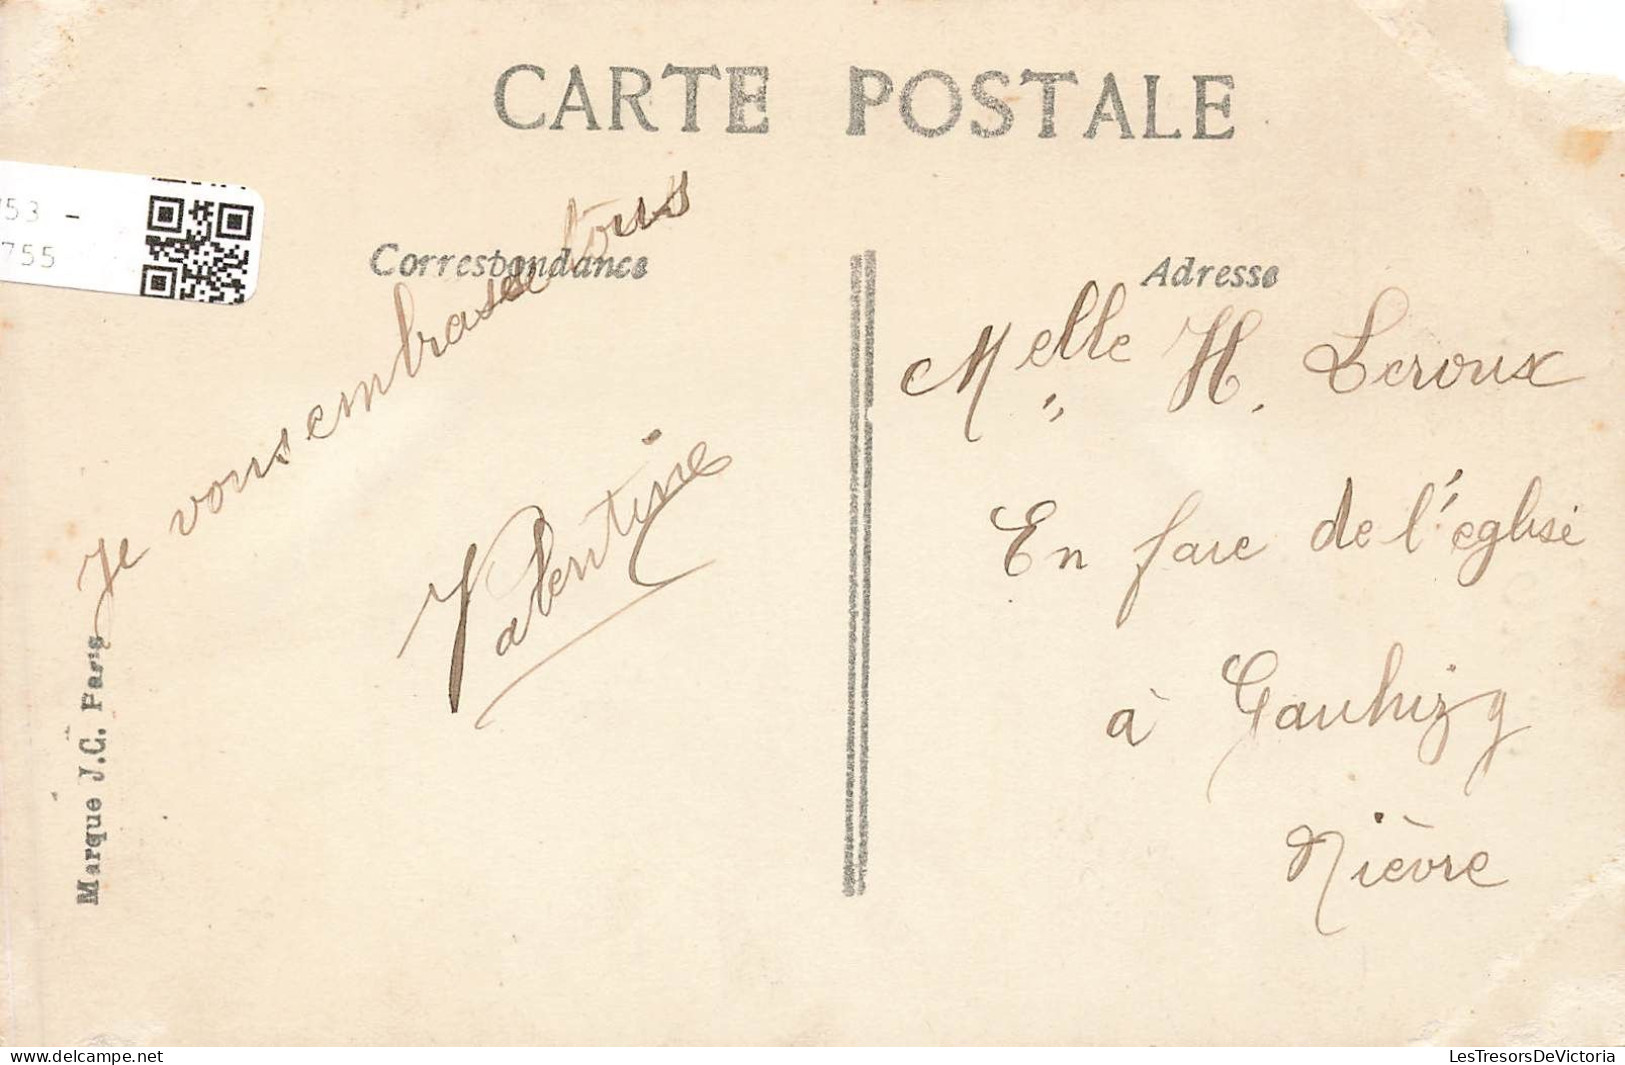 CARTE POSTALE
753 -
755
Correspondance
Adresse
Je vous embrasse tous
Valentine
Melle H. Leroux
En face de l'église
à Gauhizy
Nièvre
Marque J.C. Paris
LesTresorsDeVictoria
delcampe.net